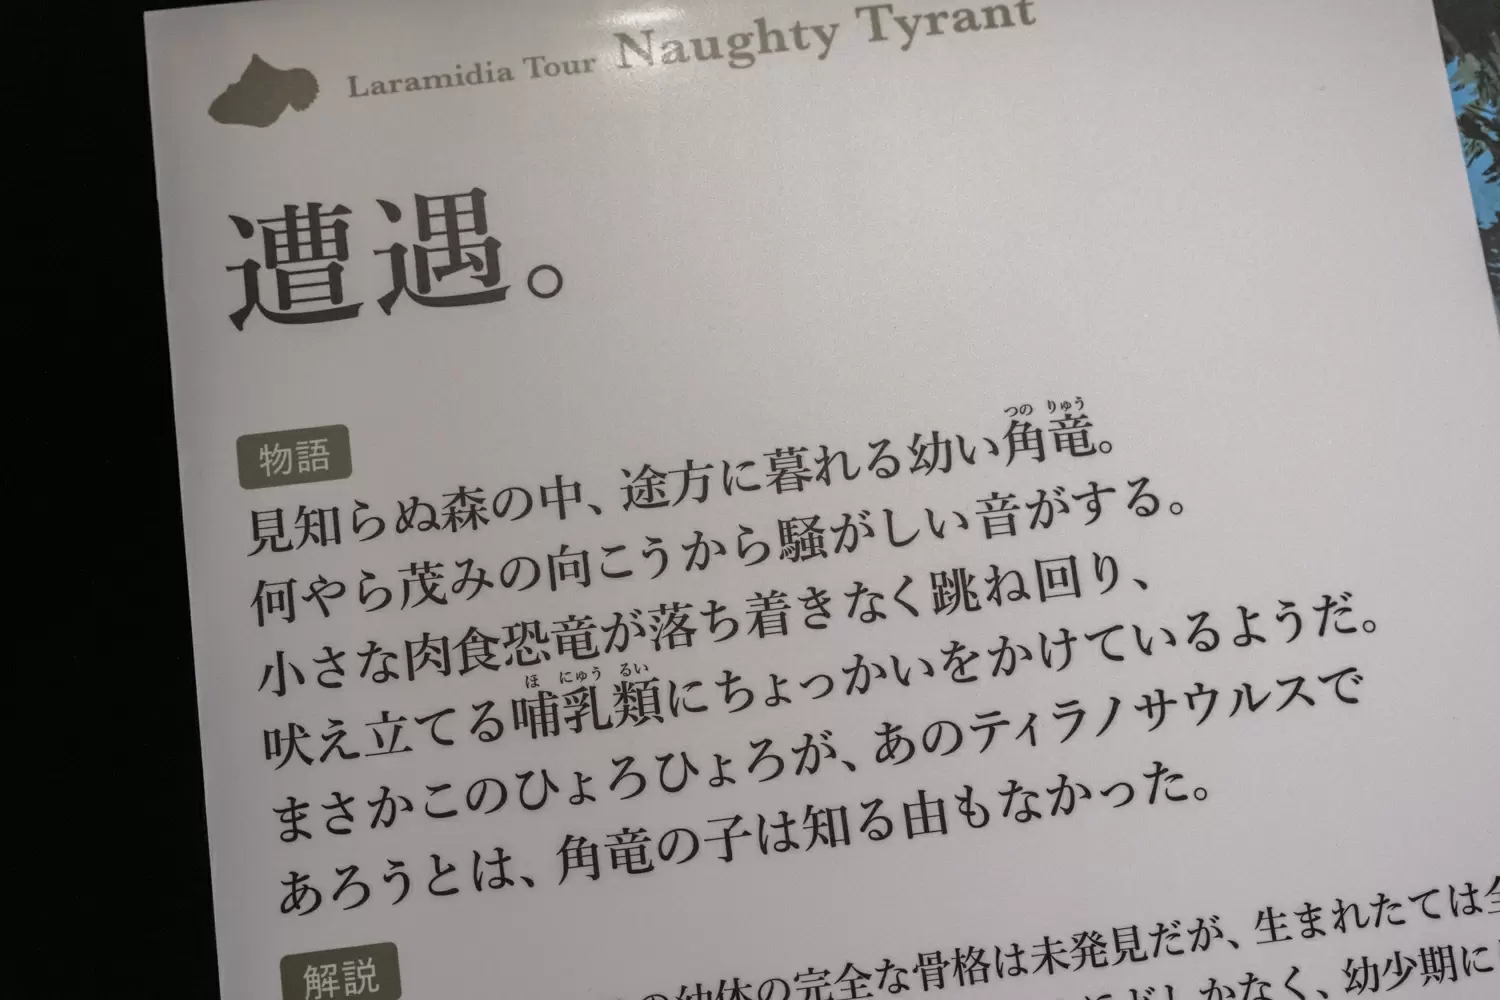 Laramidia Tour Naughty Tyrant
遭遇。
物語
見知らぬ森の中、途方に暮れる幼い角竜。
何やら茂みの向こうから騒がしい音がする。
小さな肉食恐竜が落ち着きなく跳ね回り、
吠え立てる哺乳類にちょっかいをかけているようだ。
まさかこのひょろひょろが、あのティラノサウルスで
あろうとは、角竜の子は知る由もなかった。
解説
の幼体の完全な骨格は未発見だが、生まれたては全
にどしかなく、幼少期に